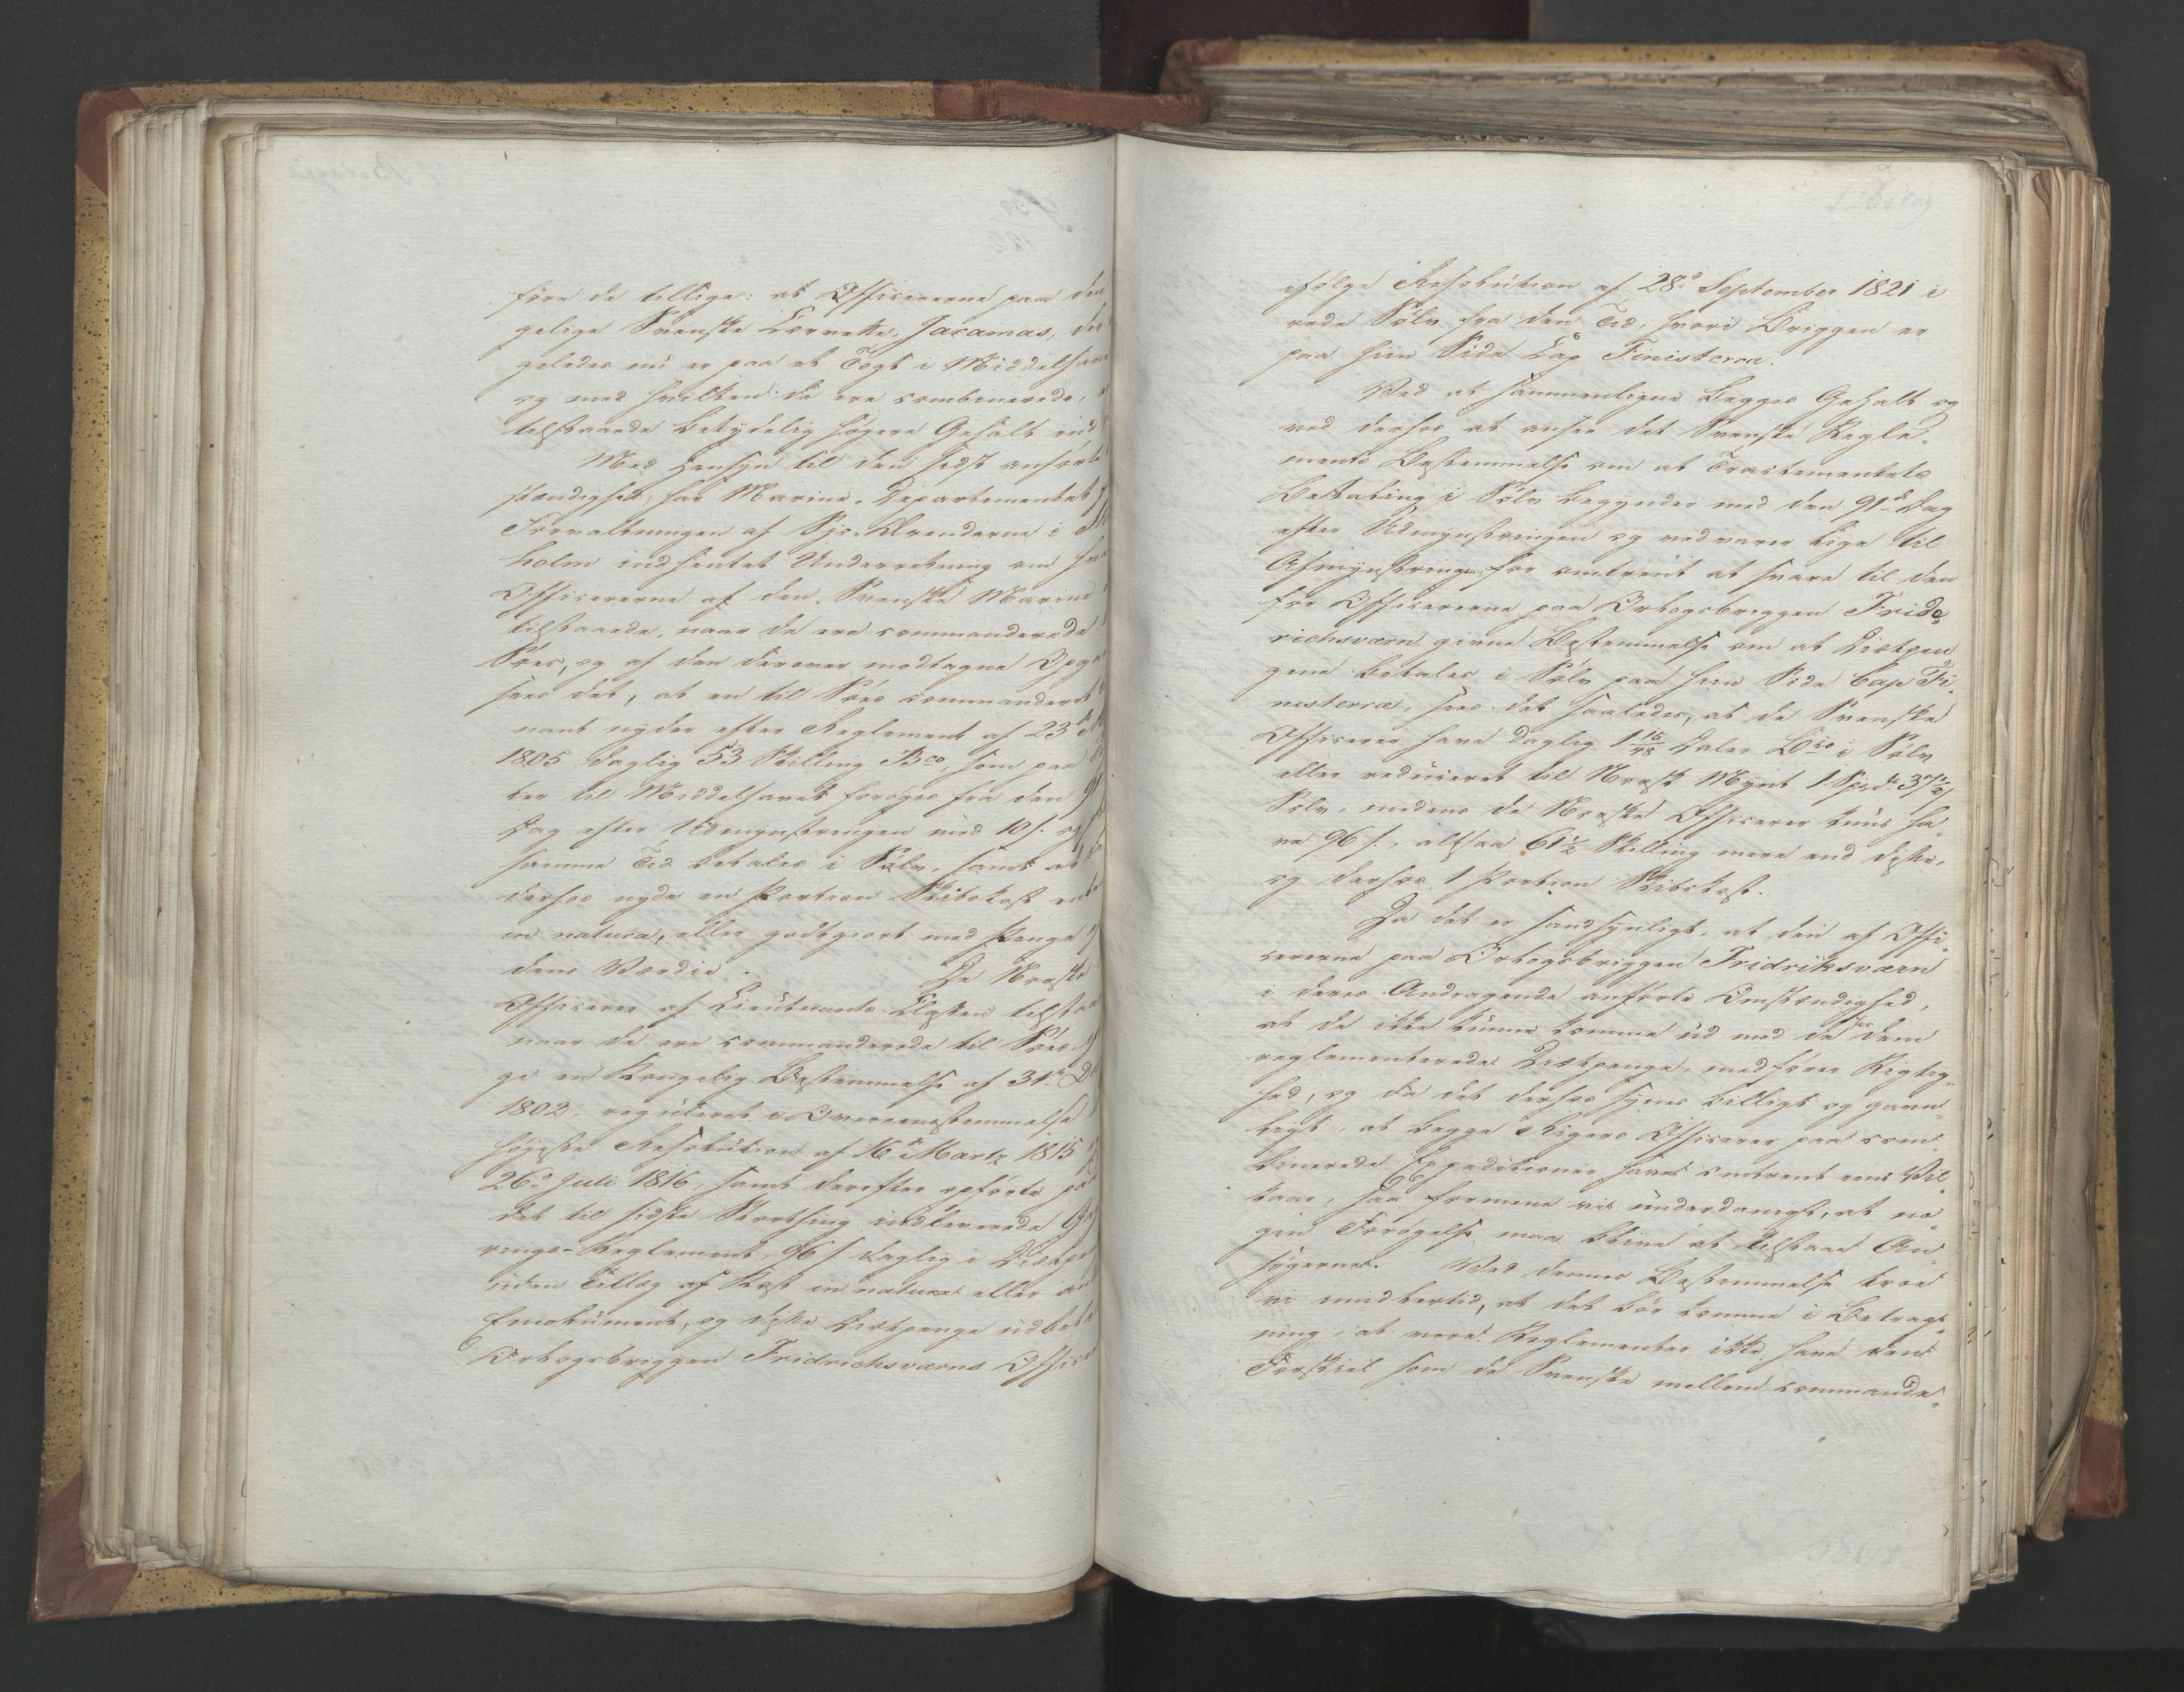 føre de tillige: at Officererne paa den
gelige Svenske Corvette, Jaramas, der
geledes nu er paa et Togt i Middelhav
og med hvilken de ere combinerede,
tilstaaede betydelig høgere Gehalt end
Med Hensyn til den sidst anførte
stændighed, har Marine-Departementet
Forvaltningen af Sjø-Ærenderne i
holm indhentet Underretning om
Officererne af den Svenske Marine
tilstaaede, naar de ere commanderede
Søes, og af den derover modtagne Opga
sees det, at en til Søes commanderet
nant nyder efter Reglement af 23de
1805 daglig 53 Skilling Bco, som paa
ter til Middelhavet forøges fra den 91
Dag efter Udmynstringen med 10 s. og
samme Tid betales i Sølv, samt at
derhos nyde en Portion Skibskost
in natura, eller godtgiort med Penge
dens Værdie. De Norske
Officerer af Lieutnants Classen tilstaa
naar de ere commanderede til Søes
ge en Kongelig Bestemmelse af 31te De
1802, reguleret i Overeensstemmelse
høyeste Resolution af 16de Martz 1815
26de Juli 1816, samt derefter opførte
det til sidste Storthing indleverede
rings-Reglement, 96 s daglig i Diætpe
uden Tillæg af Kost in natura eller
Emolument, og disse Diætpenge udbeta
Orlogsbriggen Fridrichsværns Office
ifølge Resolution af 28de September 1821 i
rede Sølv fra den Tid, hvori Briggen er
paa hiin Side Cap Finisterra.
Ved at sammenligne begges Gehalt og
ved derhos at ansee det Svenske Regle-
ments Bestemmelse om at Tractementets
Betaling i Sølv begynder med den 91de Dag
efter Udmynstringen og vedvarer lige til
Afmynstringen, for omtrent at svare til den
for Officererne paa Orlogsbriggen Fride-
richsværn givne Bestemmelse om at Diætpen-
gene betales i Sølv paa hiin Side Cap Fi-
nisterræ, sees det saaledes, at de Svenske
Officerer have daglig 1 15/48 Daler Bco i Sølv
eller reduceret til Norsk Mynt 1 Spd. 37½ s
Sølv, medens de Norske Officerer kuns ha-
ve 96 s., altsaa 61½ Skilling mere end disse,
og derhos 1 Portion Skibskost.
Da det er sandsynligt, at den af Offi-
cererne paa Orlogsbriggen Fridriksværn
i deres Andragende anførte Omstændighed,
at de ikke kunne komme ud med de for dem
reglementerede Diætpenge, medfører Rigtig-
hed, og da det derhos synes billigt og gavn-
ligt, at begge Rigers Officerer paa com-
binerede Expeditioner have omtrent eens Vil-
kaar, saa formene vi underdanigst, at no-
gen Forøgelse maa blive at tilstaae An-
søgerne. Ved dennes Bestemmelse troe
vi imidlertid, at det bør komme i Betragt-
ning, at vore Reglementer ikke have den
Forskiel som de Svenske mellem commande-